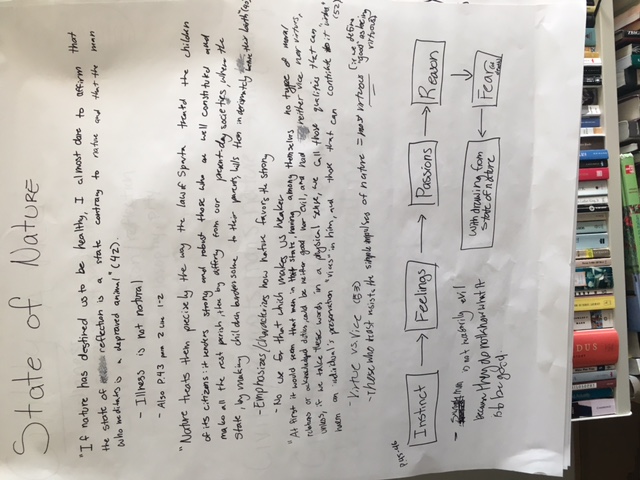 State of Nature
"If nature has destined us to be healthy, I almost dare to affirm that
the state of reflection is a state contrary to nature and that the man
who meditates is a depraved animal" (42).
- Illness is not natural
- Also P.43 para 2 line 1-2
"Nature treats them precisely the way the law of Sparta treated the children
of its citizens: it renders strong and robust those who are well constituted and
makes all the rest perish, thereby differing from our present-day societies, where the
state, by making children burdensome to their parents, kills them indiscriminately before their birth" (40)
- Emphasizes/characterizes how nature favors the strong
- No use for that which makes us weaker
"At first it would seem that men in that state, having among themselves no type of moral
relations or acknowledged duties, could be neither good nor evil, and had neither vice nor virtues,
unless, if we take these words in a physical sense, we call those qualities that can
harm an individual's preservation "vices" in him, and those that can contribute to it "virtues"
(52)
- Virtue vs Vice (53)
- Those who least resists the simple impulses of nature = most virtuous [if we define
"good" as being
virtuous]
Instinct → Feelings → Passions → Reason
Fear
withdrawing from
state of nature
- man is not naturally evil
because they do not know what it
is to be good.